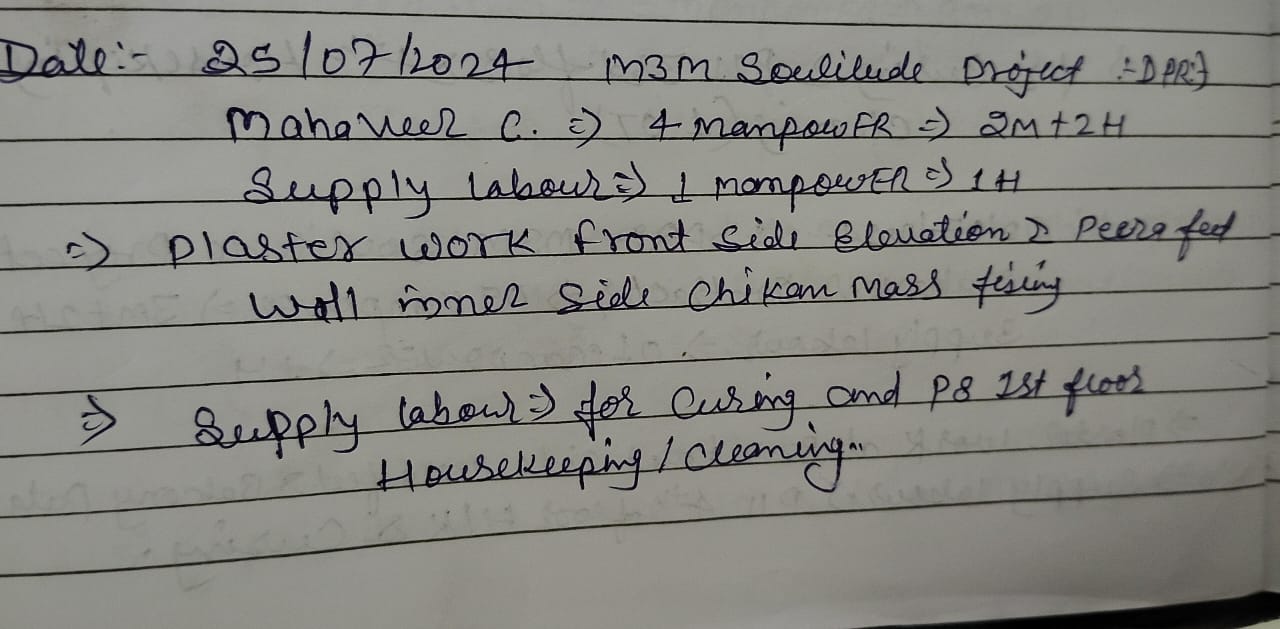 Date:- 25/07/2024 M3M Soulilude Project :-DPR:-}
Mahaveer C. => 4 ManpowER => 2M+2H
Supply labour => 1 manpowER => 1H
=> Plaster work front side Elevation &
Wall inner side Chikan mass fixing
=> Supply labour => for Curing and P8 1st floor
Housekeeping / Cleaning..